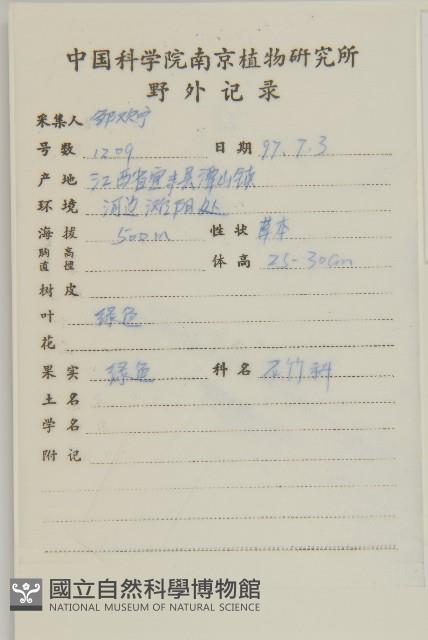 中国科学院南京植物研究所
野外记录
采集人
号数 1209 日期 97.7.3
产地 江西省宜丰县潭山镇
环境 河边 阴处
海拔 500m 性状 草本
胸高直径 体高 25-30cm
树皮
叶 绿色
花
果实 绿色 科名 石竹科
土名
学名
附记
國立自然科學博物館
NATIONAL MUSEUM OF NATURAL SCIENCE